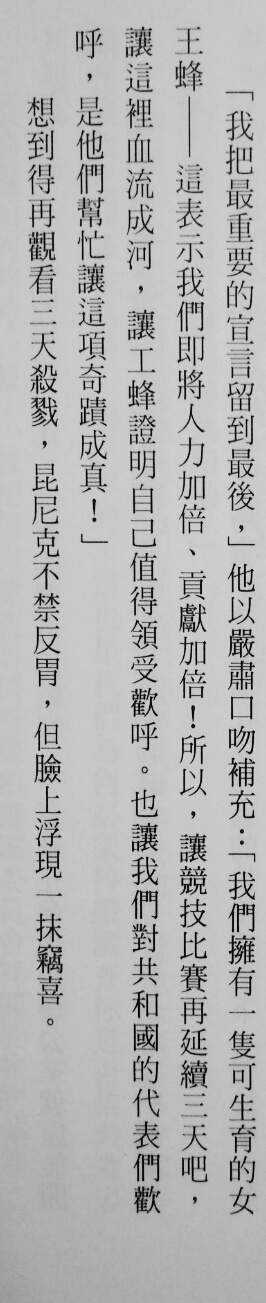 「我把最重要的宣言留到最後，」他以嚴肅口吻補充：「我們擁有一隻可生育的女
王蜂——這表示我們即將人力加倍、貢獻加倍！所以，讓競技比賽再延續三天吧，
讓這裡血流成河，讓工蜂證明自己值得領受歡呼。也讓我們對共和國的代表們歡
呼，是他們幫忙讓這項奇蹟成真！」
想到得再觀看三天殺戮，昆尼克不禁反胃，但臉上浮現一抹竊喜。